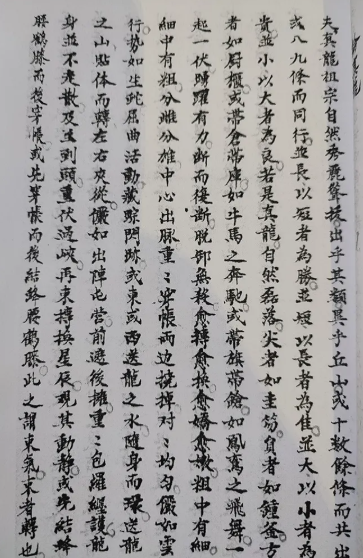 夫真龍祖宗自然秀麗聳拔出乎其類異乎丘山或十數餘條而共出
或八九條而同行並長以短者為勝並短以長者為佳並大以小者為
貴並小以大者為良若是真龍自然磊落尖者如圭笏員者如鐘釜方
者如厨櫃或帶倉帶庫如牛馬之奔馳或帶旗帶鎗如鳳鸞之飛舞一
起一伏踴躍有力断而復断脱卸無殺愈轉愈換愈嬌愈嫩粗中有細
細中有粗分雌分雄中心出脉重〻穿帳而边撓掉对〻均勻儼如雲
行势如生蛇屈曲活動藏踪閃跡或東或西送龍之水隨身而環送龍
之山貼体而轉左右夾從儼如出陣屯營前遮後擁重〻包羅纏護龍
身並不走散及至到頭重伏過峽再束摶換星辰現其動静或先結蜂
腰鶴膝而後穿帳或先穿帳而後結蜂腰鶴膝此之謂束氣束者轉也